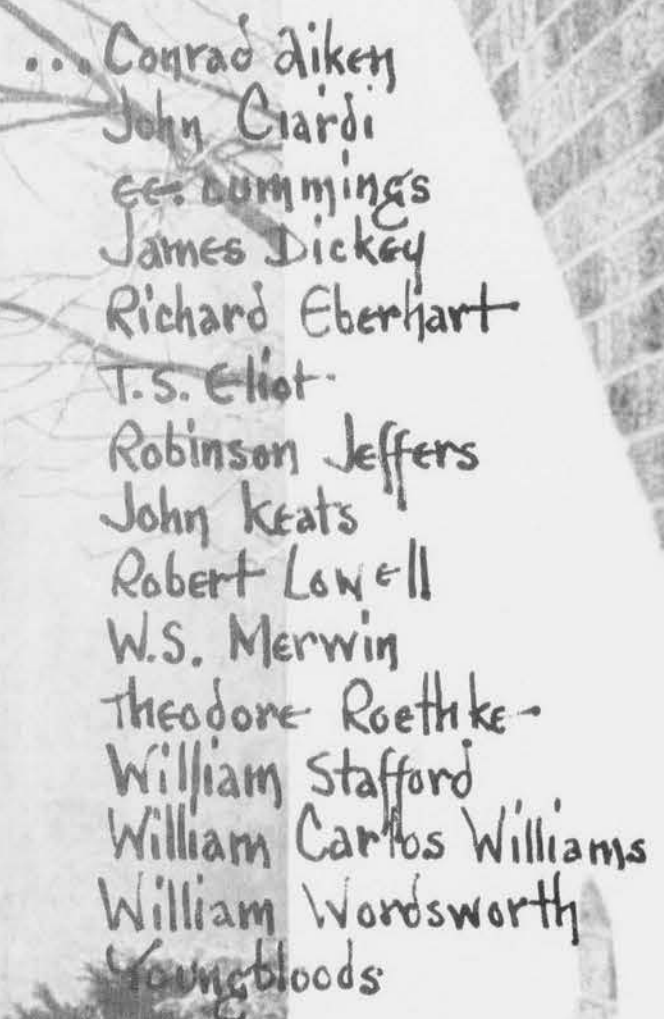 ...Conrad Aiken
John Ciardi
ee. cummings
James Dickey
Richard Eberhart
T.S. Eliot
Robinson Jeffers
John Keats
Robert Lowell
W.S. Merwin
Theodore Roethke
William Stafford
William Carlos Williams
William Wordsworth
Youngbloods